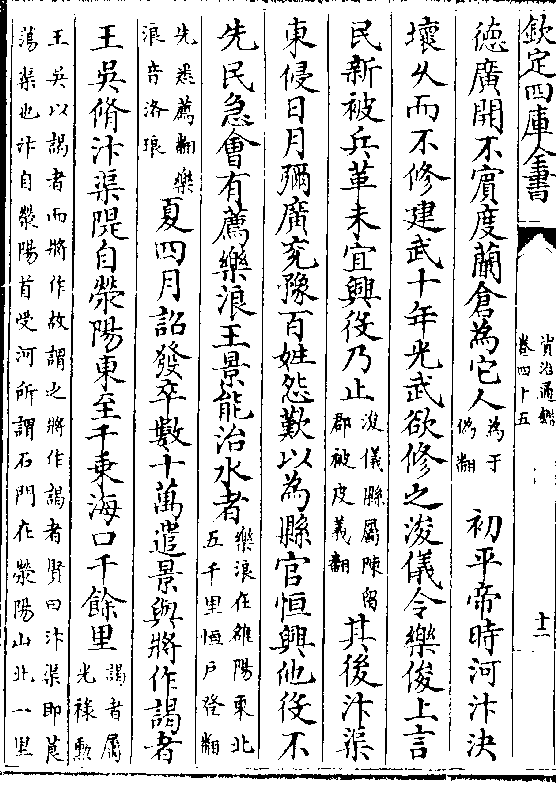 欽定四庫全書
資治通鑑
卷四十五
十二
德廣開不賓度蘭倉為它人為于偽翻　初平帝時河汴決
壞久而不修建武十年光武欲修之浚儀令樂俊上言
民新被兵革未宜興役乃止浚儀縣屬陳留郡被皮義翻其後汴渠
東侵日月彌廣兖豫百姓怨歎以為縣官恒興他役不
先民急會有薦樂浪王景能治水者樂浪在雒陽東北五千里恒戶登翻
先悉薦翻樂浪音洛琅夏四月詔發卒數十萬遣景與將作謁者
王吳脩汴渠隄自滎陽東至千乘海口千餘里謁者屬光祿勲
王吳以謁者而將作故謂之將作謁者賢曰汴渠即莨
蕩渠也汴自滎陽首受河所謂石門在滎陽山北一里